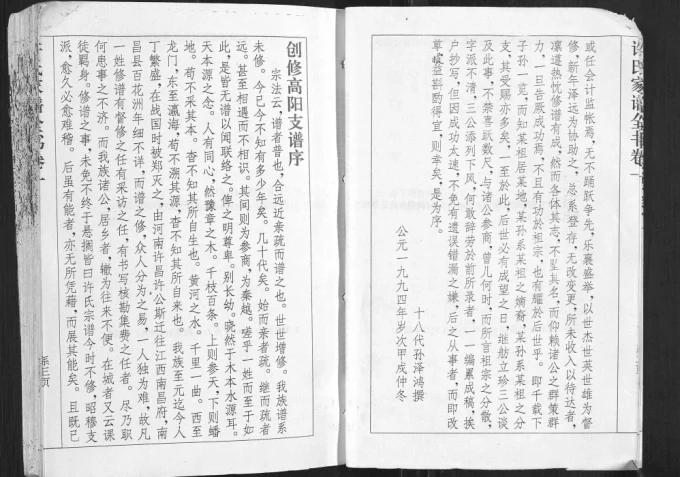 许氏家谱全书卷一
或任会计监帐焉，无不踊跃争先，乐襄盛举，以世杰世英世雄为督
修，新年泽远为协助之，总系登存，无改变更，所未收入以待达者，
凛遵热忱修谱有成，然而各体其志，不坠其名，而仰赖诸公之群策群
力，一旦告厥成功焉，不且有功於祖宗，也有耀於后世乎。即千载下
子孙一览，而知某祖居某地，某孙系某祖之嫡裔，某孙系某祖之分
支，其受赐亦多矣，一至於此，后世必有成望之日，继舫立珍三公谈
及此事，不禁喜跃数尺，与诸公参商，曾几何时，而所言祖宗之分散，
字派不清，三公添列下风，何敢辞劳於前所录者，一一编累成稿，挨
户抄写，但因成功太速，不免有遗误错漏之嫌，后之从事者，而即改
章峻益斟酌得宜，则幸矣，是为序。
十八代孙泽鸿撰
公元一九九四年岁次甲戌仲冬
创修高阳支谱序
宗法云，谱者普也，合远近亲疏而谱之也。世世增修。我族谱系
未修。今已今不知有多少年矣。几十代矣。始而亲者疏。继而疏者
远。甚至相遇而不相识。其间则为参商，为秦越。嗟乎！一姓而至于如
是。皆无谱以闻联络之。俾之明尊卑。别长幼。晓然于木本水源耳。
天本源之念。人有同心，然豫章之木。千枝百条。上则参天，下则蟠
地。苟不采其本。杳不知其所自生也。黄河之水。千里一曲。西至
龙门，东至瀛海，苟不溯其源，杳不知其所自来也。我族至元迄今人
丁繁盛，在战国时被郑灭之，由河南许昌许公斯迁往江西南昌府，南
昌县百花洲年细不详，而谱之修，众人分为之易，一人独为难，故凡
一姓修谱有督修之任有采访之任，有书写核勘集费之任者。尽乃职
何患事之不济。而我族诸公，居乡者，辙为往来不便。在城者又云课
徒羁身。修谱之事，未免不终于悬搁皆曰许氏宗谱今时不修，昭穆支
派，愈久必愈难稽。后虽有能者，亦无所凭藉，而展其能矣。且既已